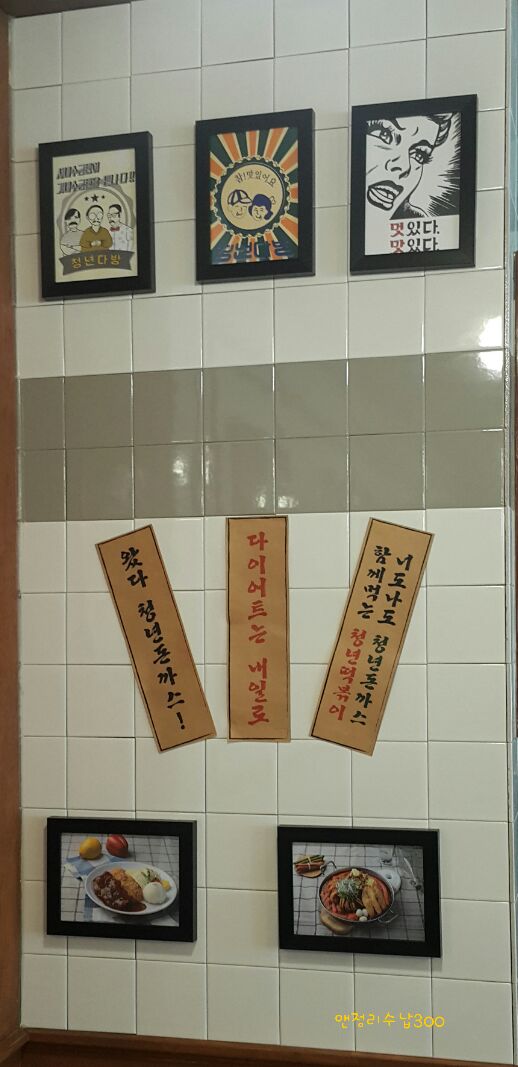 청년다방
참!맛있어요
멋있다.
맛있다.
왔다 청년돈까스!
다이어트는 내일로
너도나도 청년돈까스
함께먹는 청년떡볶이
앤정리수납300